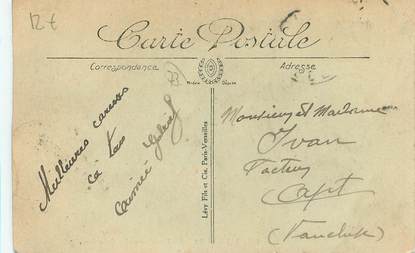 12 €
Carte Postale
Correspondance
Adresse
73
Meilleures caresses
à tous
Lévy Fils et Cie, Paris-Versailles
Monsieur et Madame
Ivan
Facteur
Apt
(Vaucluse)